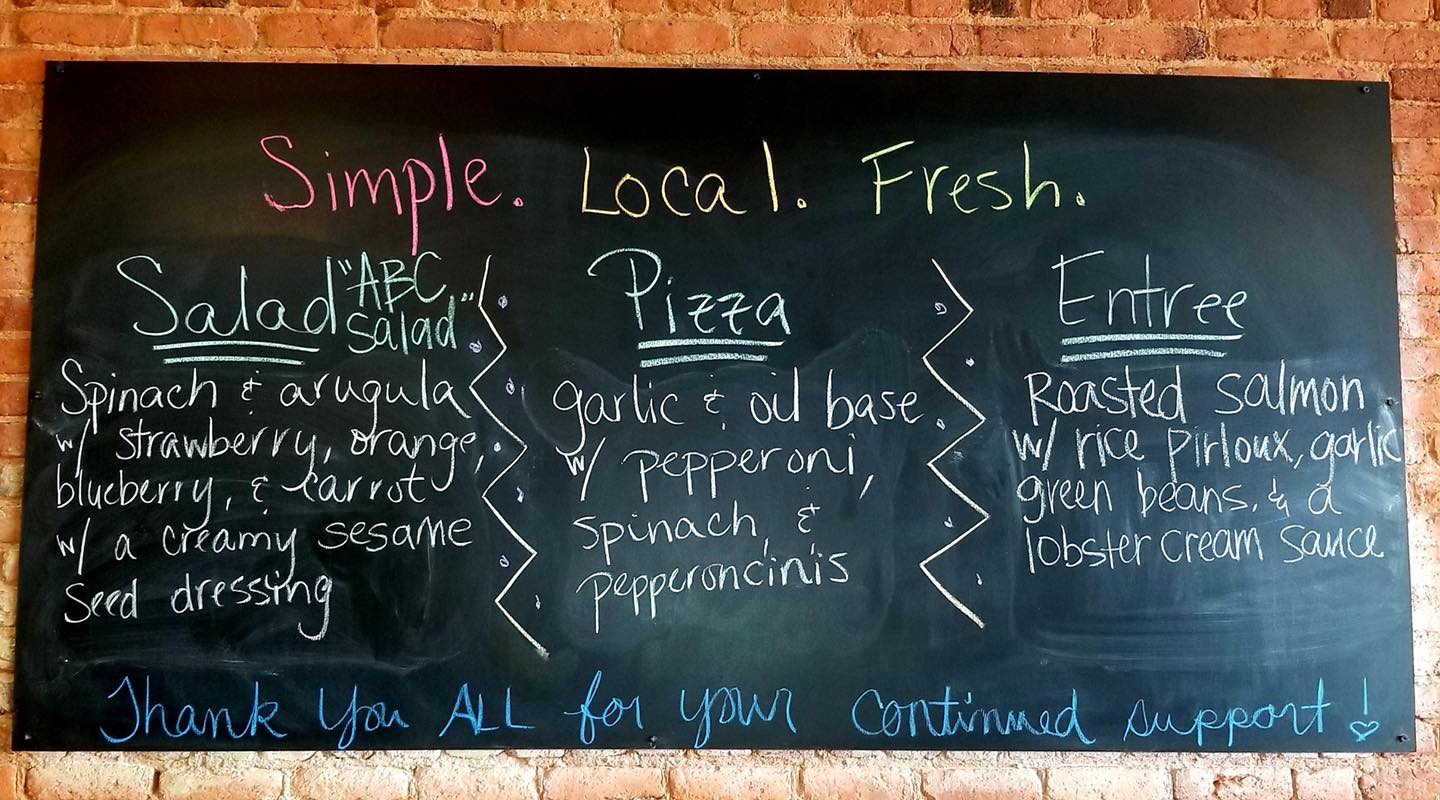 Simple. Local. Fresh.
Salad "ABC
salad"
Spinach & arugula
w/ strawberry, orange,
blueberry, & carrot
w/ a creamy sesame
seed dressing
Pizza
garlic & oil base
w/ pepperoni,
spinach, &
pepperoncinis
Entree
Roasted salmon
w/ rice pirloux, garlic
green beans, & a
lobster cream sauce
Thank you ALL for your continued support!